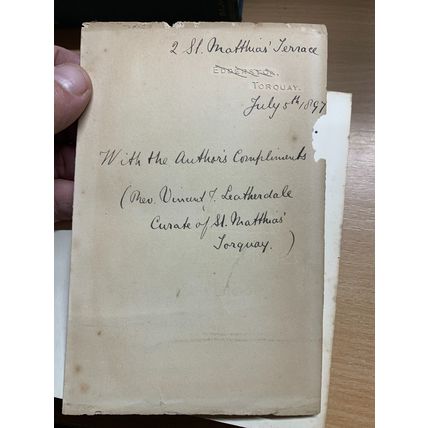 2 St. Matthias' Terrace
EDGERSTON.
TORQUAY.
July 5th 1897
With the Author's Compliments
(Rev. Vincent J. Leatherdale
Curate of St. Matthias'
Torquay. )